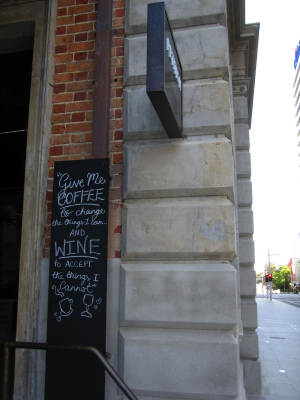 "Give Me
COFFEE
to change
the things I can...
AND
WINE
to ACCEPT
the things I
Cannot"